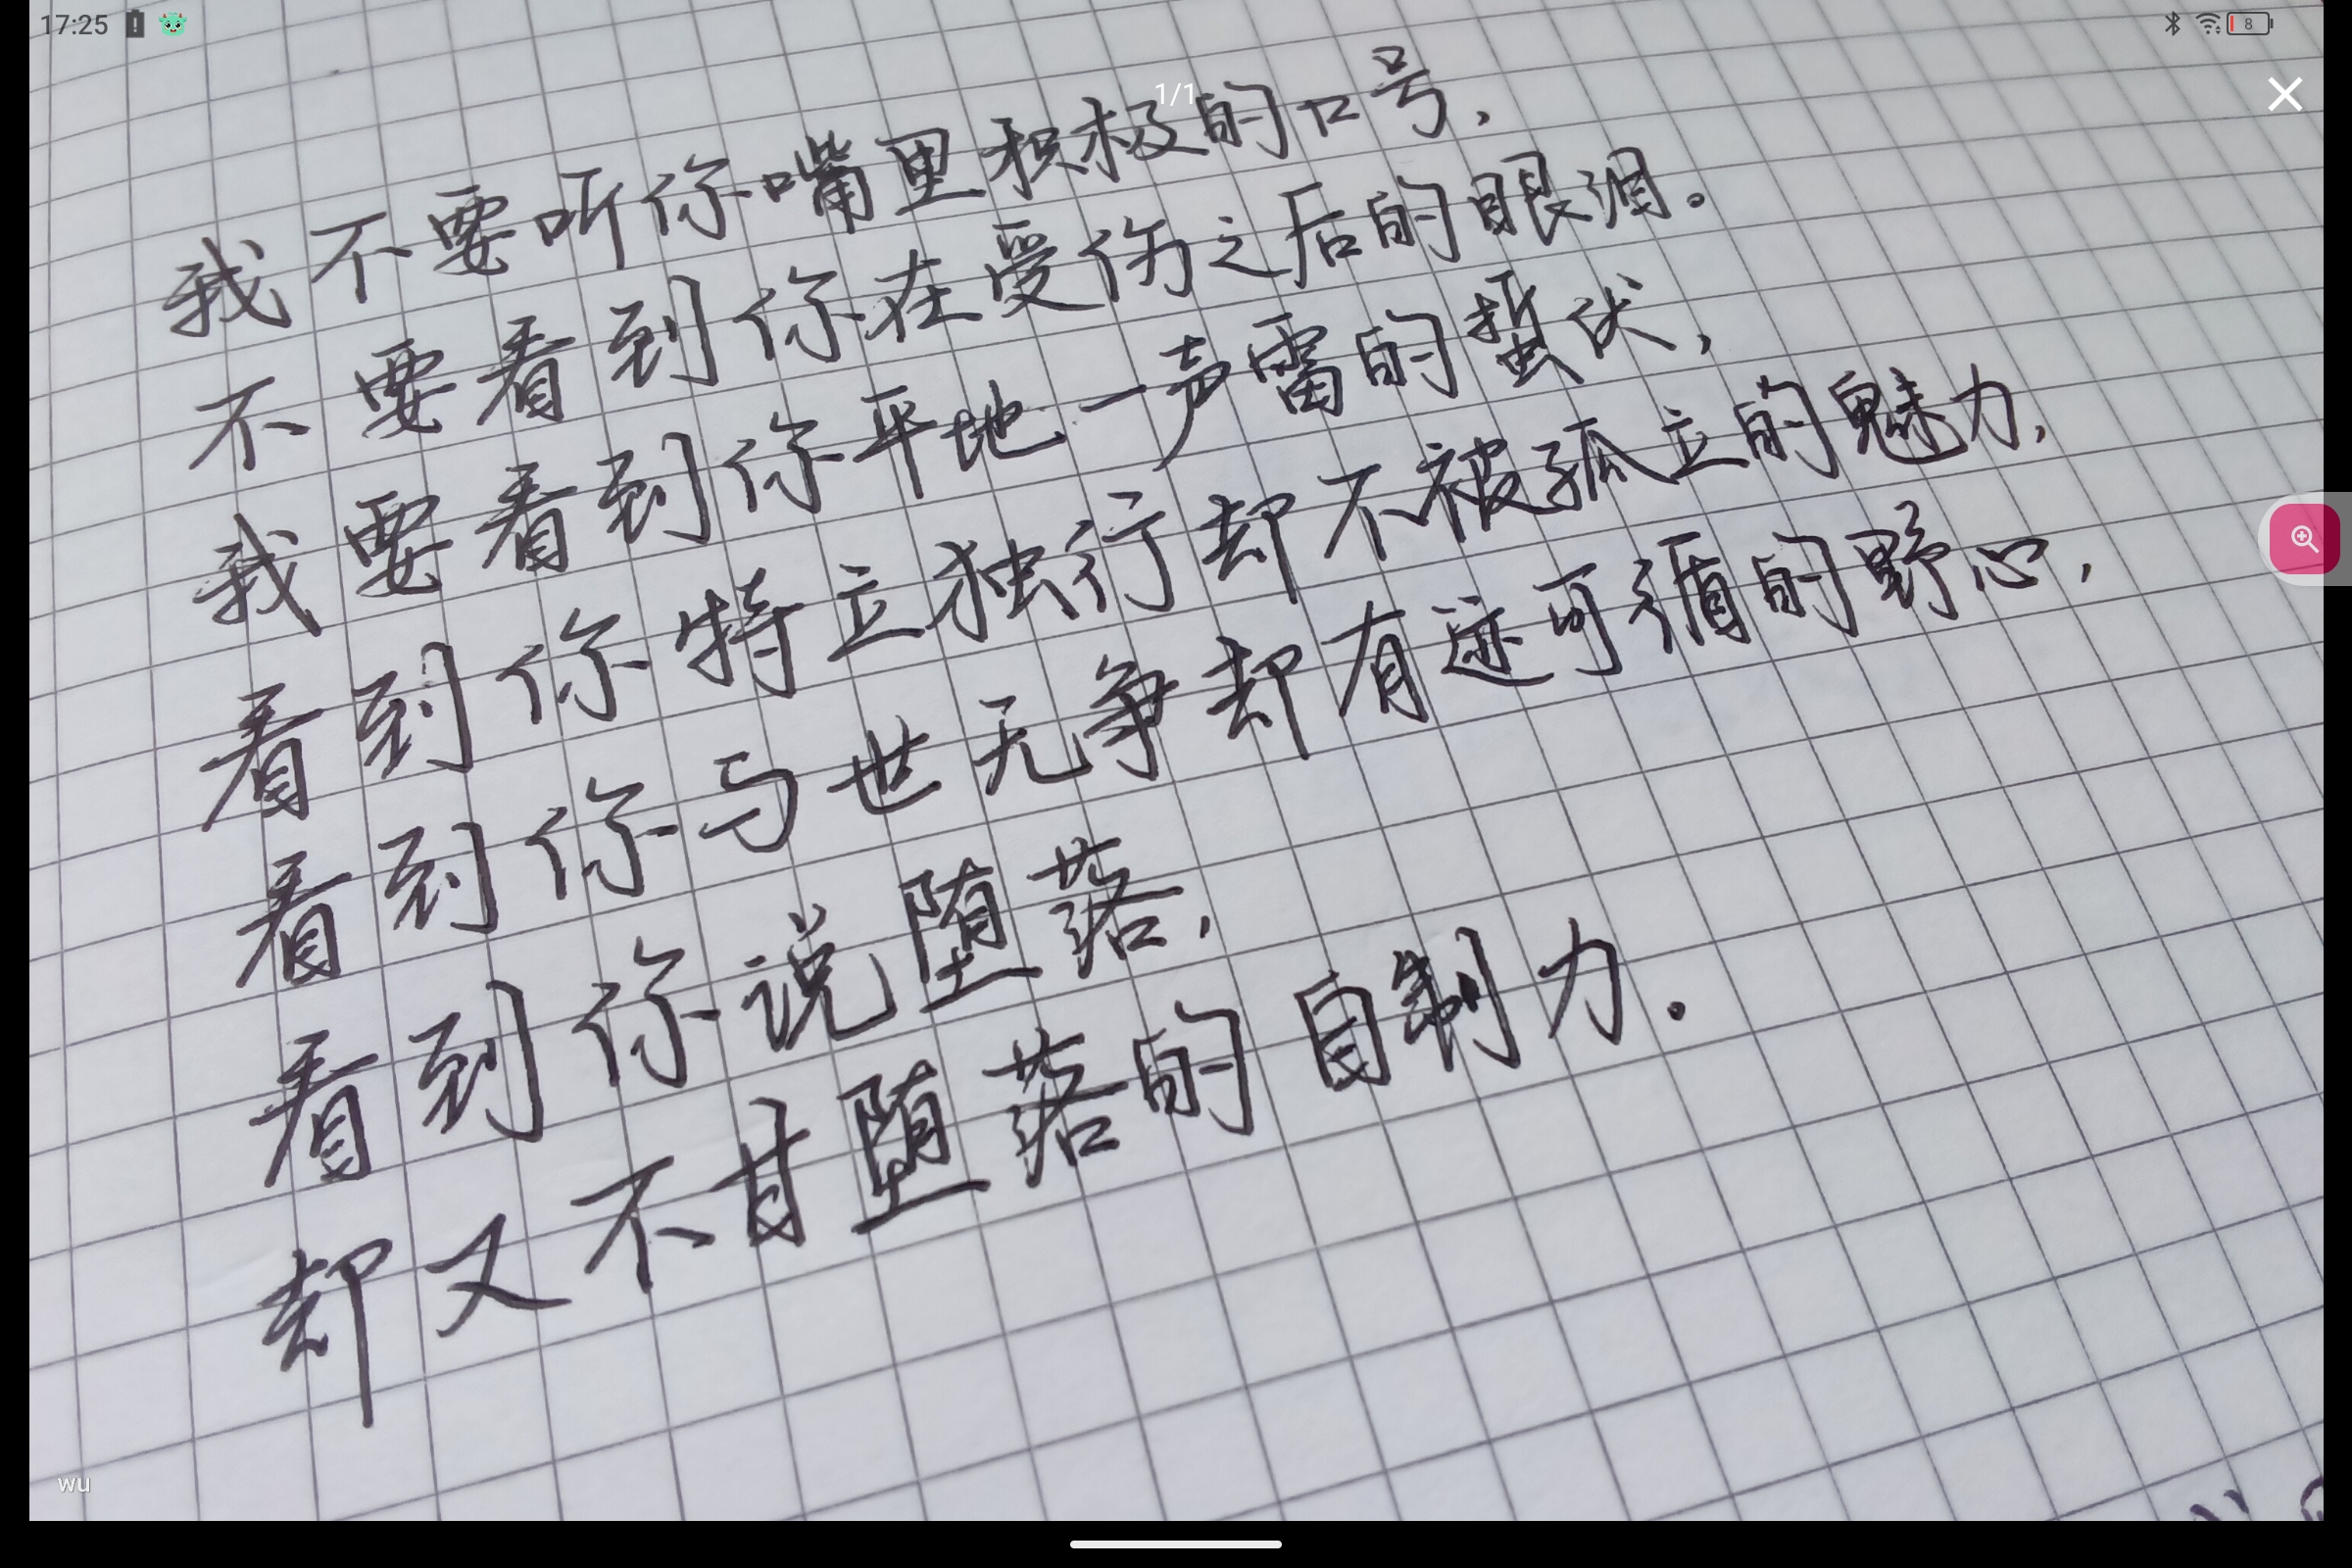 17:25
8
1/1
我不要听你嘴里积极的口号，
不要看到你在受伤之后的眼泪。
我要看到你平地一声雷的蜇伏，
看到你特立独行却不被孤立的魅力，
看到你与世无争却有迹可循的野心，
看到你说堕落，
却又不甘堕落的自制力.
wu